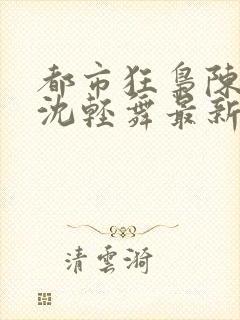 都市狂梟陳
沈輕舞最新
清雲漪